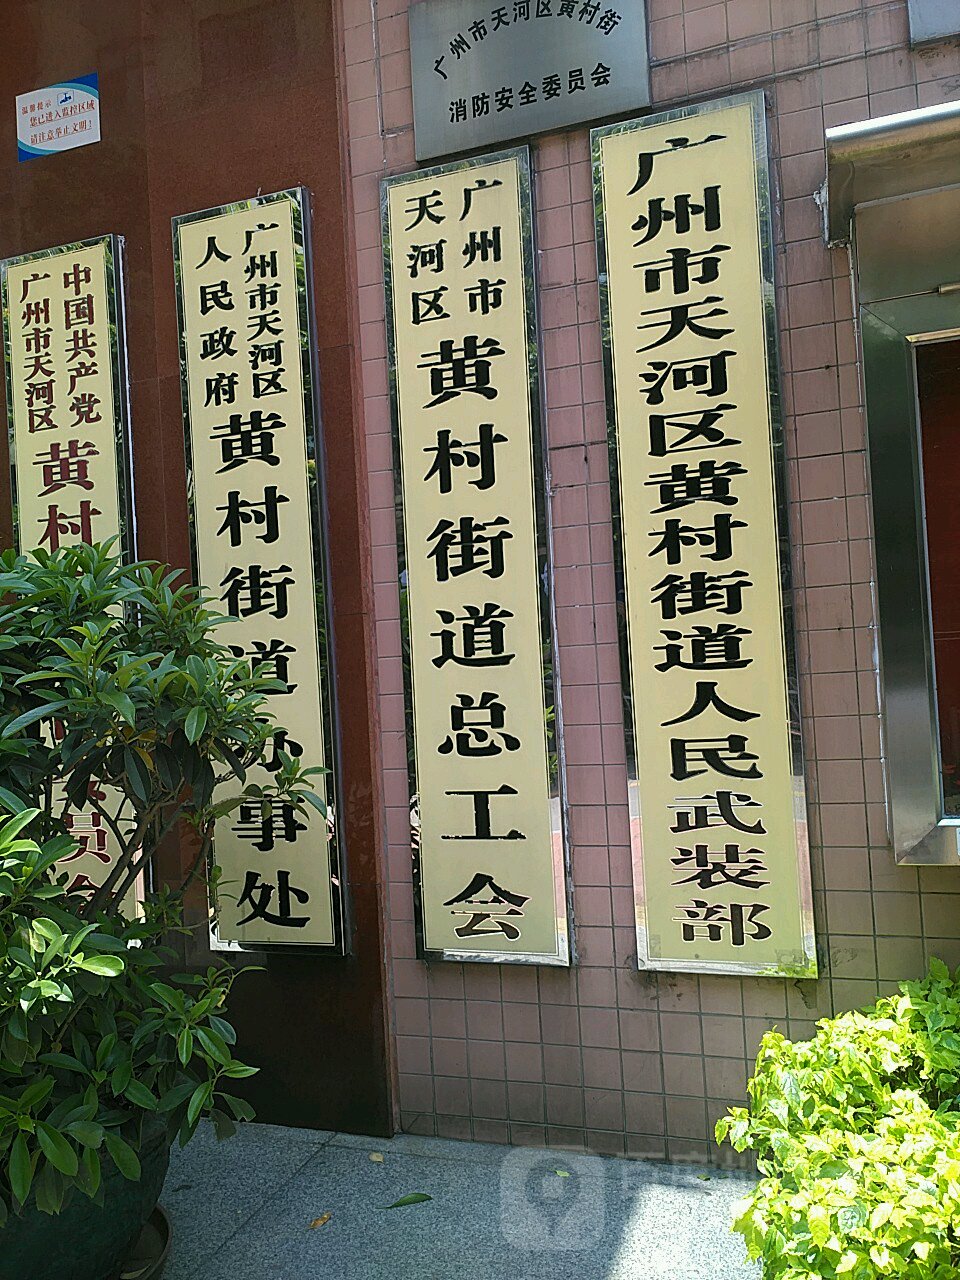 广州市天河区黄村街
消防安全委员会
温馨提示
您已进入监控区域
请注意举止文明！
中国共产党
广州市天河区
黄村
员
广州市天河区
人民政府
黄村街道办事处
广州市
天河区
黄村街道总工会
广州市天河区黄村街道人民武装部